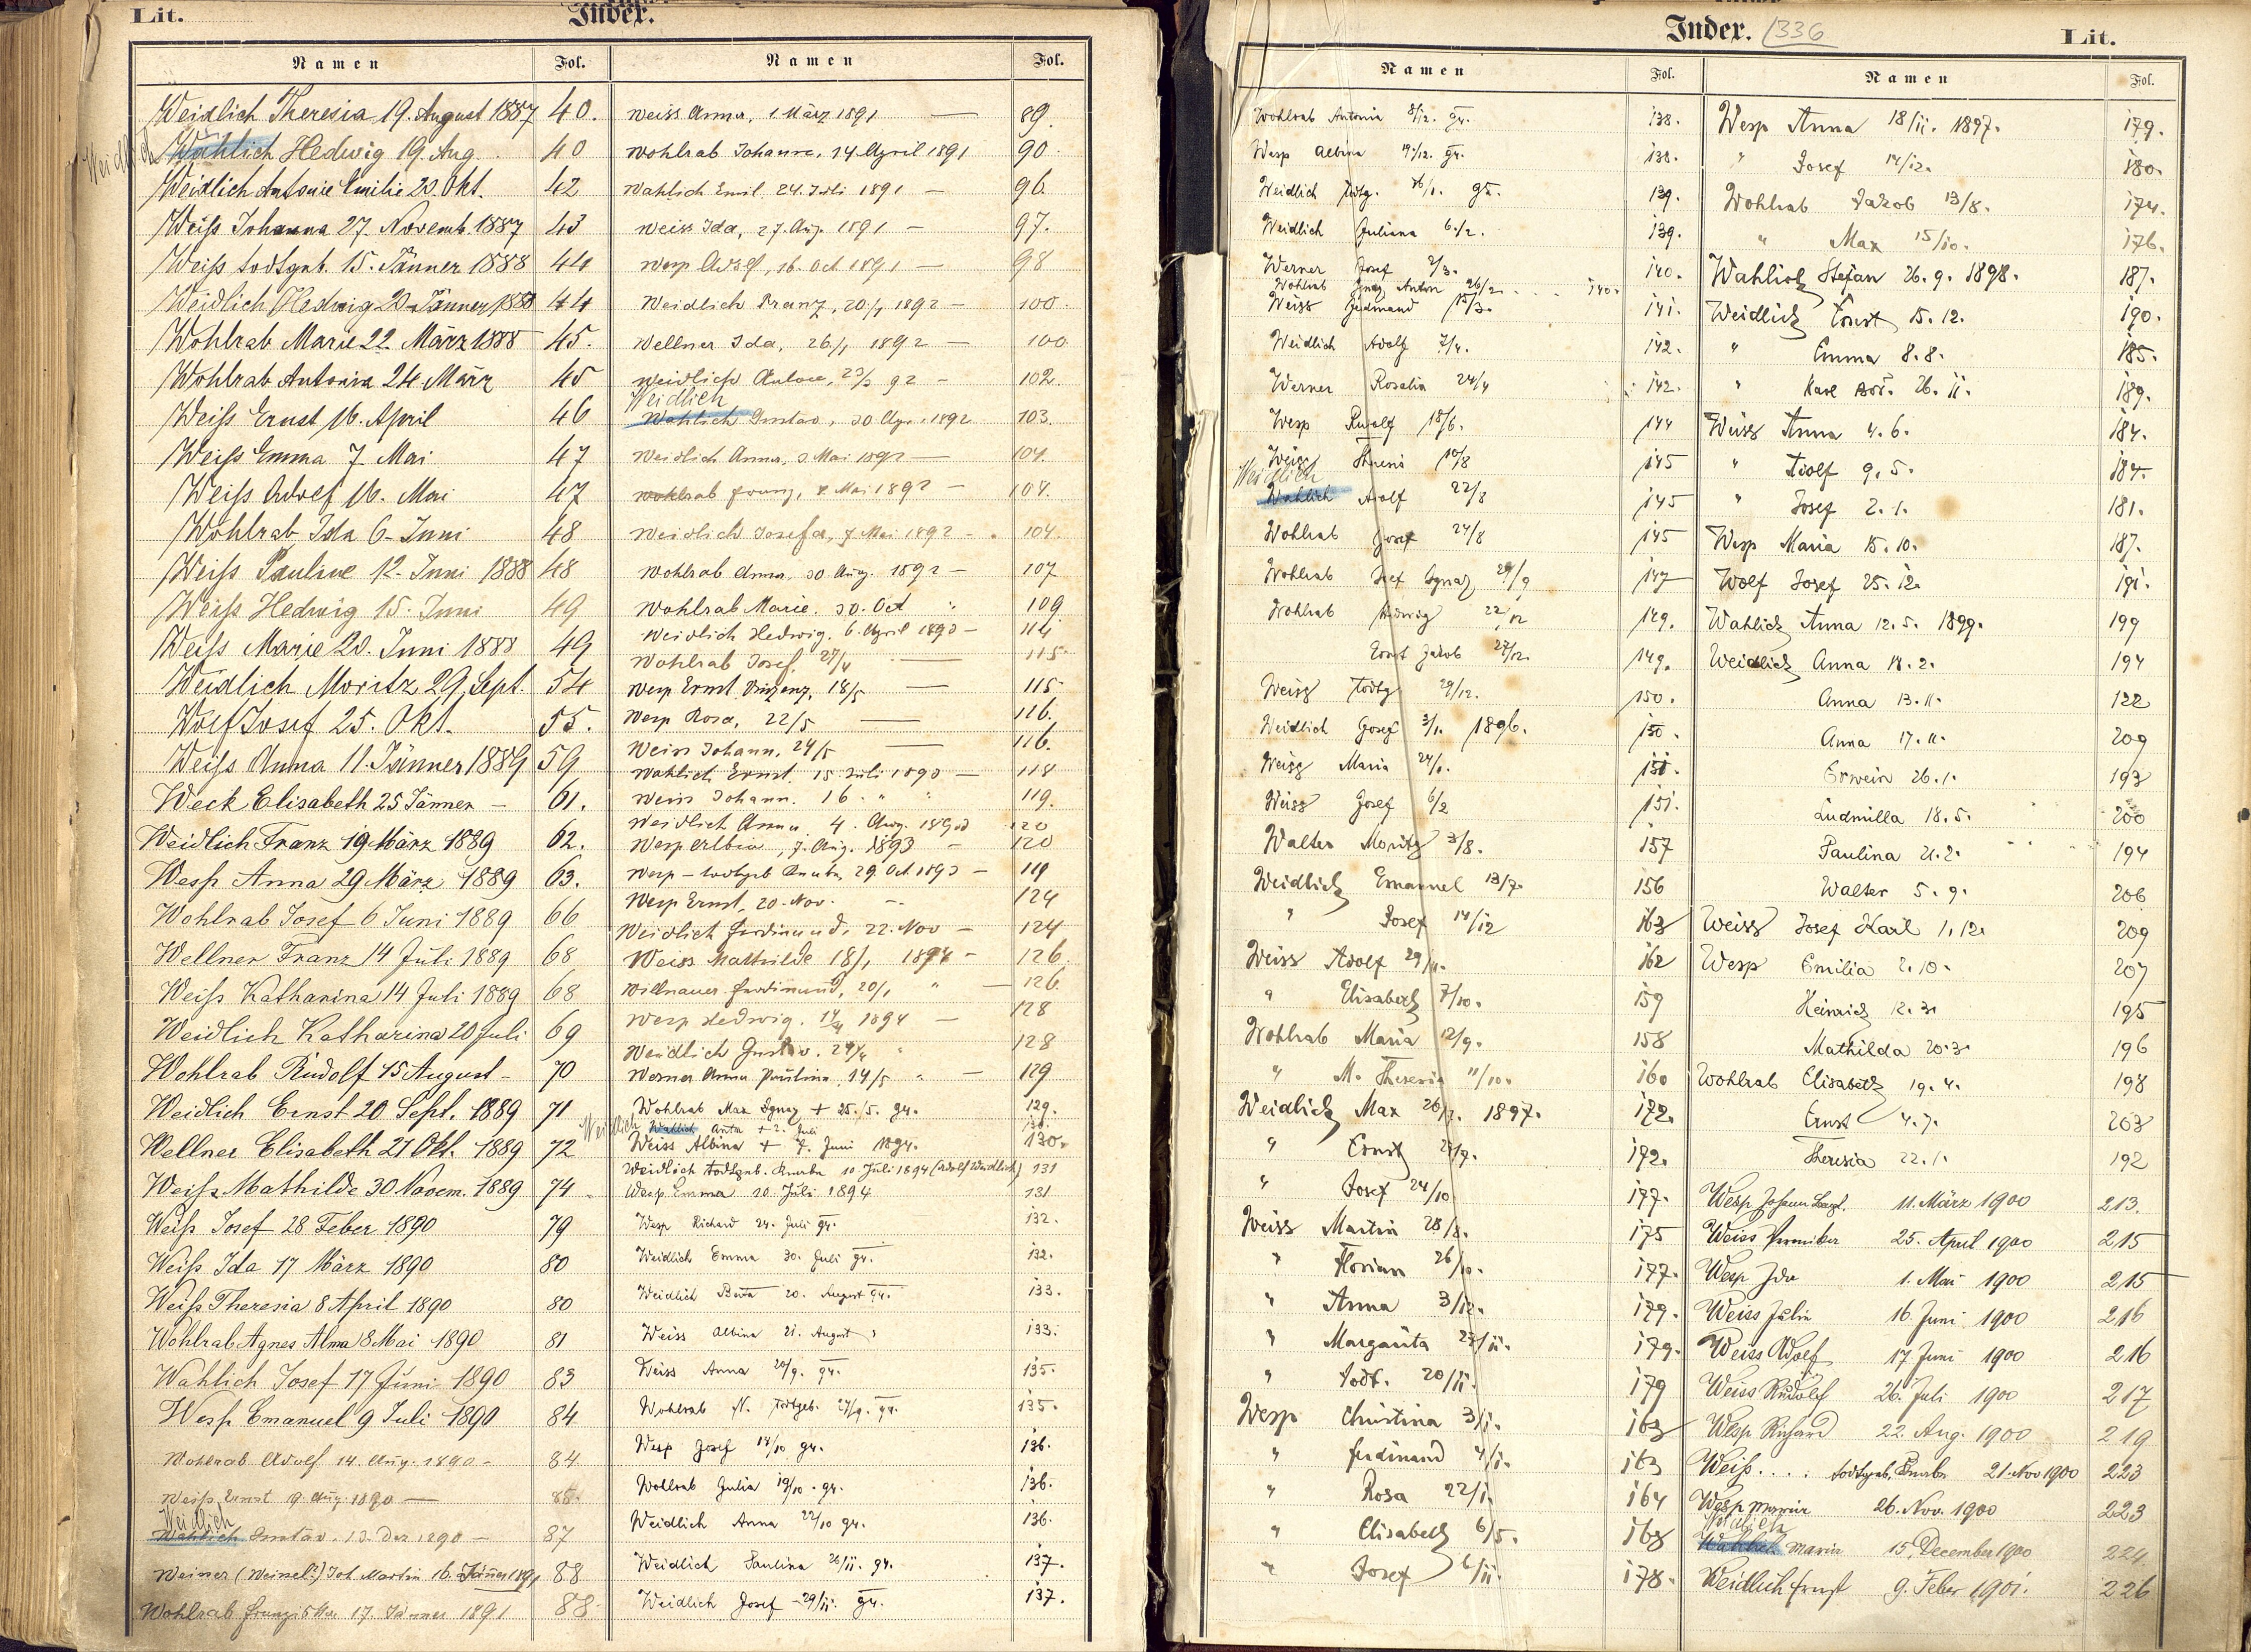 Lit.
Index.
Namen Fol.
Weidlich Theresia 19. August 1887 40.
Weidlich
Wahlich Hedwig 19. Aug. 40
Weidlich Antonie Emilie 20. Okt. 42
Weiß Johanna 27. Novemb. 1887 43
Weiß todtgeb. 15. Jänner 1888 44
Weidlich Hedwig 20 Jänner 1888 44
Wohlrab Marie 22. März 1888 45.
Wohlrab Antonia 24 März 45
Weiß Ernst 16. April 46
Weiß Emma 7. Mai 47
Weiß Adolf 16. Mai 47
Wohlrab Ida 6. Juni 48
Weiß Pauline 12. Juni 1888 48
Weiß Hedwig 15. Juni 49
Weiß Marie 20. Juni 1888 49
Weidlich Moritz 29. Sept. 54
Wolf Josef 25. Okt. 55.
Weiß Anna 11. Jänner 1889 59
Weck Elisabeth 25 Jänner - 61.
Weidlich Franz 19 März 1889 62.
Wesp Anna 29 März 1889 63.
Wohlrab Josef 6 Juni 1889 66
Wellner Franz 14 Juli 1889 68
Weiß Katharina 14 Juli 1889 68
Weidlich Katharina 20 Juli 69
Wohlrab Rudolf 15 August - 70
Weidlich Ernst 20 Sept. 1889 71
Wellner Elisabeth 21 Okt. 1889 72
Weiß Mathilde 30 Novem. 1889 74
Weiß Josef 28 Feber 1890 79
Weiß Ida 17 März 1890 80
Weiß Theresia 8 April 1890 80
Wohlrab Agnes Alma 8 Mai 1890 81
Wahlich Josef 17 Juni 1890 83
Wesp Emanuel 9 Juli 1890 84
Wohlrab Adolf 14. Aug. 1890 - 84
Weiss Ernst 9. Aug 1890 — 85.
Weidlich
Wahlich Gustav. 13. Dez 1890 - 87
Weiner (Weinel?) Joh. Martin 16. Jänner 1891 88
Wohlrab Franziska 17. Jänner 1891 88
Namen Fol.
Weiss Anna, 1. März 1891 — 89.
Wohlrab Johann, 14. April 1891 90
Wahlich Emil. 24. Juli 1891 - 96.
Weiss Ida, 27. Aug. 1891 - 97.
Wesp Adolf, 16. Oct 1891 - 98
Weidlich Franz, 20/1 1892 - 100.
Wellner Ida, 26/1 1892 - 100
Weidlich 23/3 92 - 102.
Weidlich
Wahlich Gustav, 30 Apr. 1892 103.
Weidlich Anna, 3 Mai 1892 — 104.
Wohlrab Franz, 7. Mai 1892 - 104.
Weidlich Josefa, 7 Mai 1892 - 104.
Wohlrab Anna, 30 Aug. 1892 - 107
Wohlrab Marie. 30. Oct " 109
Weidlich Hedwig. 6. April 1893 - 114
Wohlrab Josef. 27/4 — 115
Wesp Ernst Vinzenz, 18/5 — 115
Wesp Rosa, 22/5 — 116.
Weiss Johann, 24/5 — 116.
Wahlich Ernst. 15. Juli 1893 - 118
Weiss Johann. 16. " " 119.
Weidlich Anna 4. Aug. 1893 120
Wesp Albin, 7. Aug. 1893 - 120
Wesp - todtgeb Knabe, 29. Oct. 1893 - 119
Wesp Ernst, 20. Nov. 124
Weidlich Ferdinand, 22. Nov - 124
Weiss Mathilde 18/1 1894 - 126.
Willnauer Ferdinand, 20/1 " — 126.
Wesp Hedwig. 14/4 1894 — 128
Weidlich Gustav. 29/4 " 128
Werner Anna Paulina, 14/5 " — 129
Wohlrab Max Ignaz + 25./5. 94. 129.
Weidlich Wahlich Anta + 2. Juli 130.
Weiss Albina + 7. Juni 1894. 130.
Weidlich todtgeb. Knabe 10. Juli 1894 (Adolf Weidlich) 131
Wesp Emma 10. Juli 1894 131
Wesp Richard 24. Juli 94. 132.
Weidlich Emma 30. Juli 94. 132.
Weidlich Berta 20. August 94. 133.
Weiss Albina 21. August " 133.
Weiss Anna 20/9. 94. 135.
Wohlrab N. todtgeb. 27/9. 94. 135.
Wesp Josef 14/10 94. 136.
Wohlrab Julia 19/10. 94. 136.
Weidlich Anna 22/10 94. 136.
Weidlich Paulina 26/11. 94. 137.
Weidlich Josef - 29/11. 94. 137.
Index. 336
Lit.
Namen Fol.
Wohlrab Antonia 8/12. 94. 138.
Wesp Albina 19/12. 94. 138.
Weidlich todtg. 16/1. 95. 139.
Weidlich Juliana 6./2. 139.
Werner Josef 2/3. 140.
Wohlrab Ignaz Anton 26/2. 140.
Weiss Ferdinand 15/3. 141.
Weidlich Adolf 7/4. 142.
Werner Rosalia 24/4 142.
Wesp Rudolf 18/6. 144
Weiss 10/8 145
Weidlich
Wahlich Adolf 22/8 145
Wohlrab Josef 24/8 145
Wohlrab Josef Ignaz 29/9 147
Wohlrab Hedwig 22/12 149.
Ernst Jakob 27/12. 149.
Weiss todtg 29/12. 150.
Weidlich Josef 3/1. 1896. 150.
Weiss Maria 24/1. 151.
Weiss Josef 6/2 151.
Walter Moritz 3/8. 157
Weidlich Emanuel 13/7. 156
" Josef 14/12 163
Weiss Adolf 29/11. 162
" Elisabeth 7/10. 159
Wohlrab Maria 12/9. 158
" M. Theresia 11/10. 160
Weidlich Max 26/7. 1897. 172.
" Ernst 27/7. 172.
" Josef 24/10 177.
Weiss Martin 28/8. 175
" Florian 26/10. 177.
" Anna 3/12. 179.
" Margarita 27/11. 179.
" todt. 20/11. 179
Wesp Christina 3/1. 163
" Ferdinand 4/1. 163
" Rosa 22/1. 164
" Elisabeth 6/5. 168
" Josef 6/11. 178.
Namen Fol.
Wesp Anna 18/11. 1897. 179.
" Josef 14/12. 180.
Wohlrab Jakob 13/8. 174.
" Max 15/10. 176.
Wahlich Stefan 26. 9. 1898. 187.
Weidlich Ernst 15. 12. 190.
" Emma 8. 8. 185.
" Karl 26. 11. 189.
Weiss Anna 4. 6. 184.
" Adolf 9. 5. 184.
" Josef 2. 1. 181.
Wesp Maria 15. 10. 187.
Wolf Josef 25. 12. 191.
Wahlich Anna 12. 5. 1899. 199
Weidlich Anna 18. 2. 194
Anna 13. 11. 122
Anna 17. 11. 209
Erwein 26. 1. 193
Ludmilla 18. 5. 200
Paulina 21. 2. 194
Walter 5. 9. 206
Weiss Josef Karl 1. 12. 209
Wesp Emilia 2. 10. 207
Heinrich 12. 3. 195
Mathilda 20. 3. 196
Wohlrab Elisabeth 19. 4. 198
Ernst 4. 7. 203
Theresia 22. 1. 192
Wesp Johann 11. März 1900 213.
Weiss 25. April 1900 215
Wesp Ida 1. Mai 1900 215
Weiss Julia 16 Juni 1900 216
Weiss Adolf 17 Juni 1900 216
Weiss Rudolf 26. Juli 1900 217
Wesp Richard 22. Aug. 1900 219
Weiß . . . . todtgeb. Knabe 21. Nov 1900 223
Wesp Maria 26. Nov. 1900 223
Weidlich
Wahlich Maria 15. December 1900 224.
Weidlich Ernst 9. Feber 1901. 226